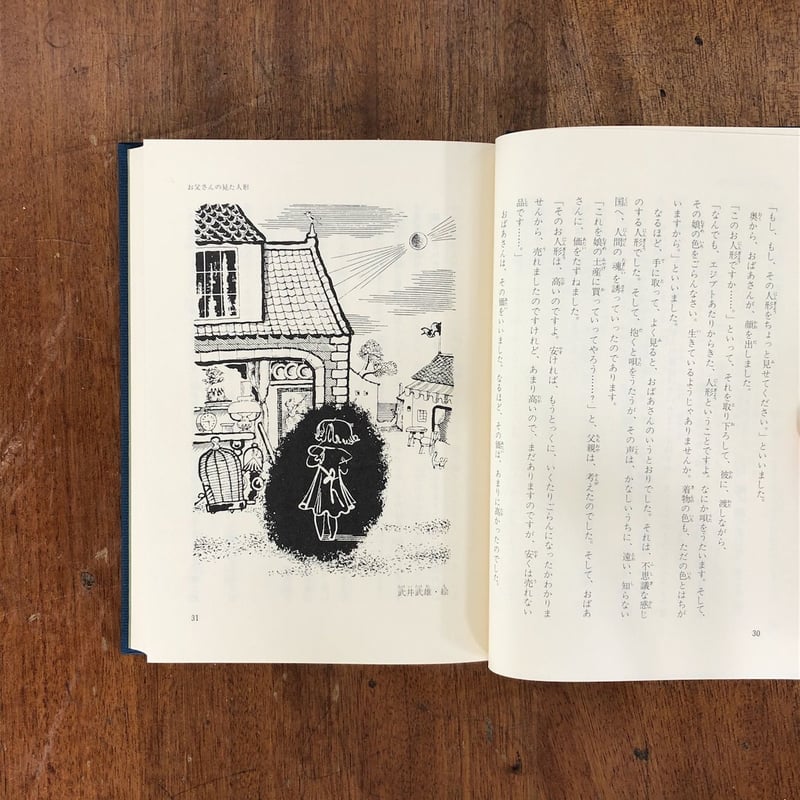 「もし、もし、その人形をちょっと見せてください。」といいました。
奥から、おばあさんが、顔を出しました。
「このお人形ですか……。」といって、それを取り下ろして、彼に、渡しながら、
「なんでも、エジプトあたりからきた、人形ということですよ。なにか唄をうたいます。そして、
その娘の色をごらんなさい。生きているようじゃありませんか。着物の色も、ただの色とはちが
いますから。」といいました。
なるほど、手に取って、よく見ると、おばあさんのいうとおりでした。それは、不思議な感じ
のする人形でした。そして、抱くと唄をうたうが、その声は、かなしいうちに、遠い、知らない
国へ、人間の魂を誘っていったのであります。
「これを娘の土産に買っていってやろう……？」と、父親は、考えたのでした。そして、おばあ
さんに、価をたずねました。
「そのお人形は、高いのですよ。安ければ、もうとっくに、いくたりごらんになったかわかりま
せんから、売れましたのですけれど、あまり高いので、まだありますのですが、安くは売れない
品です……。」
おばあさんは、その価をいいました。なるほど、その価は、あまりに高かったのでした。
30
お父さんの見た人形
武井武雄・絵
31